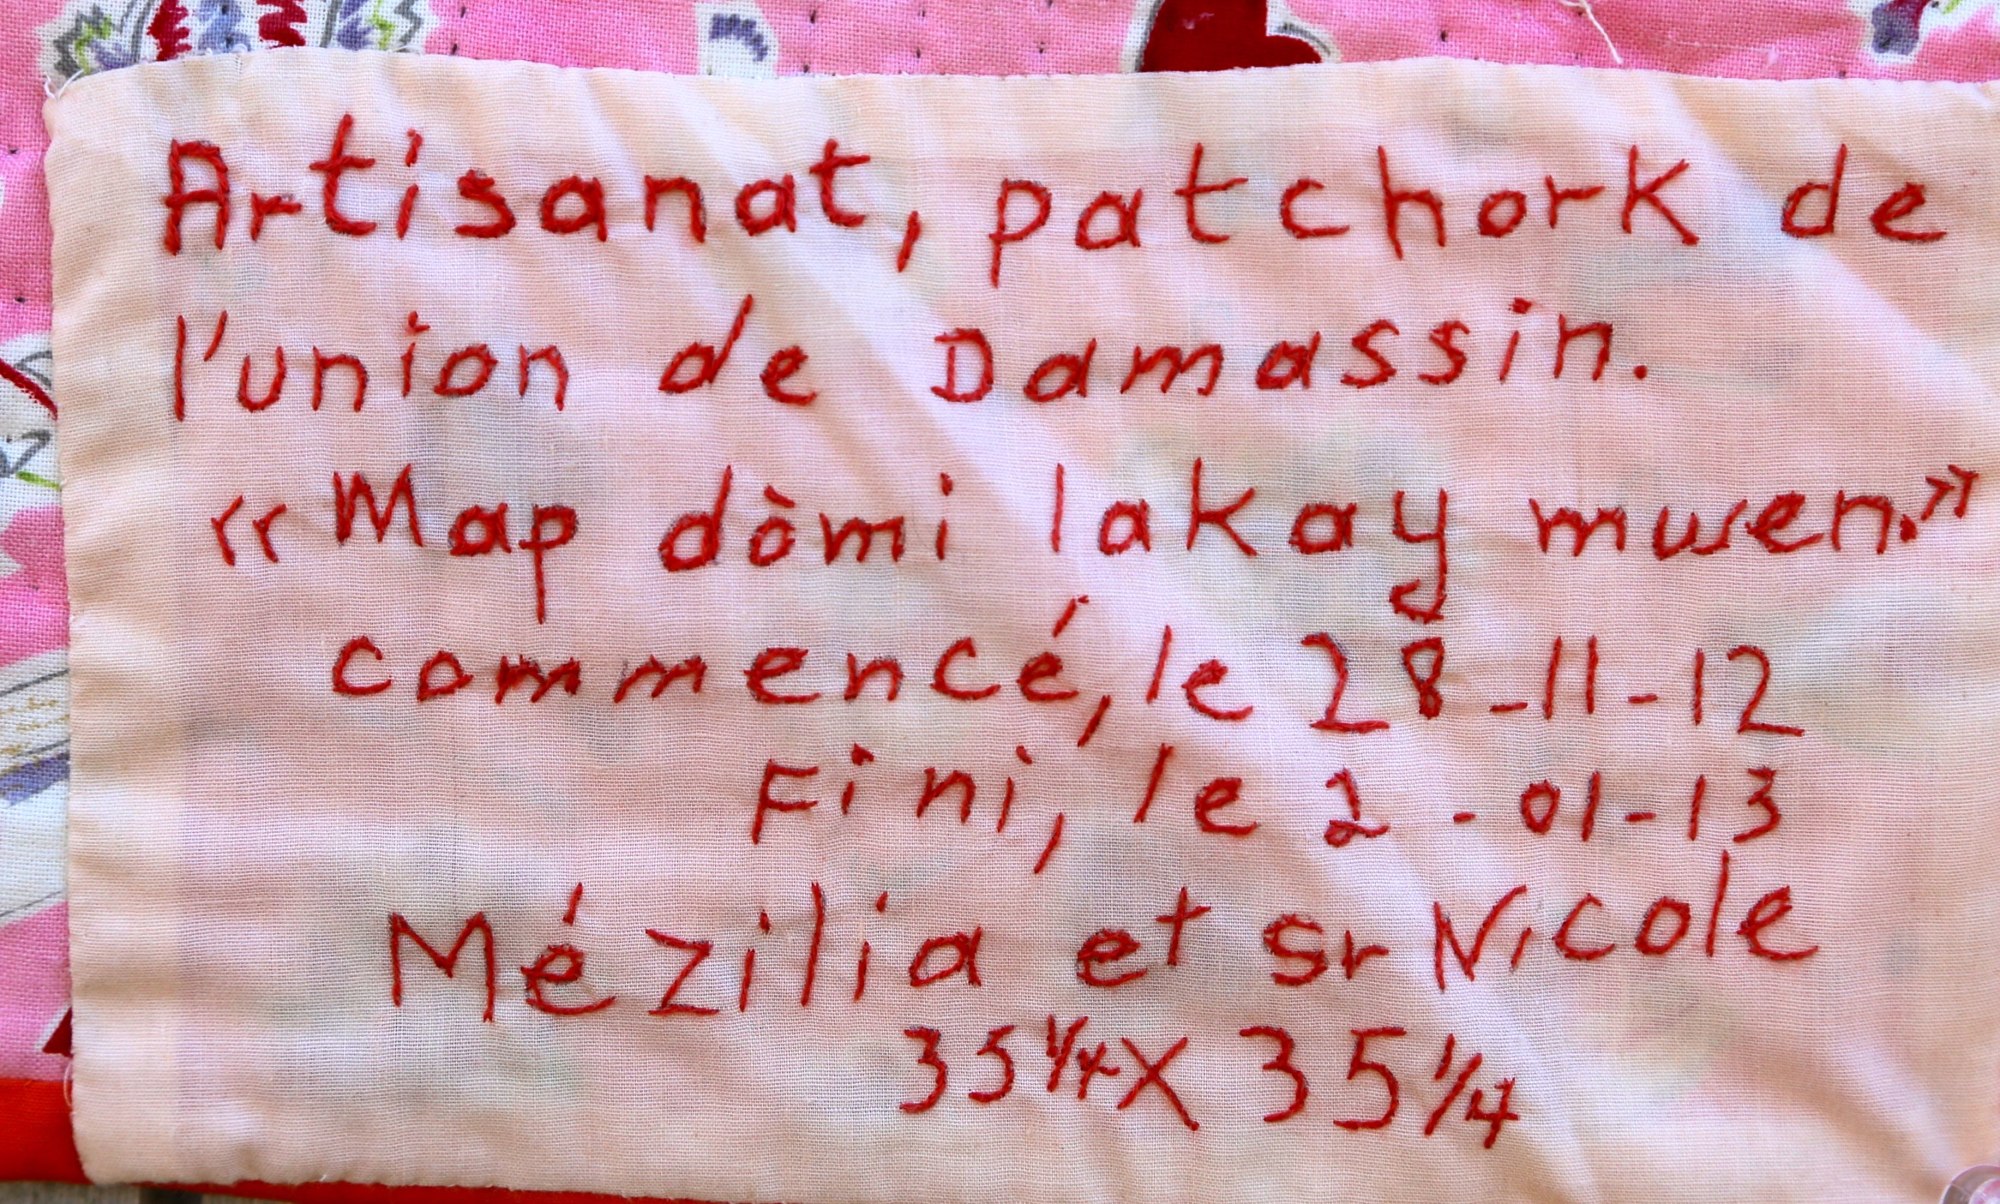 Artisanat, patchork de
l'union de Damassin.
«Map dòmi lakay mwen.»
commencé, le 28-11-12
Fini, le 2-01-13
Mézilia et Sr Nicole
35 1/4 X 35 1/4